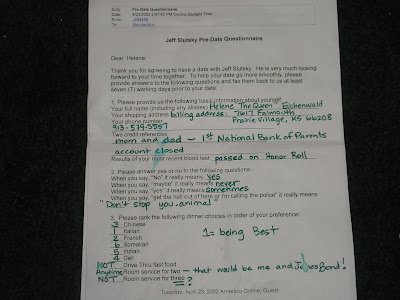 Subj: Pre-Date Questionnaire
Date: 4/23/2002 2:47:43 PM Central Daylight Time
From:
To:
Jeff Slutsky Pre-Date Questionnaire
Dear Helene
Thank you for agreeing to have a date with Jeff Slutsky. He is very much looking
forward to your time together. To help your date go more smoothly, please
provide answers to the following questions and fax them back to us at least
seven (7) working days prior to your date.
1. Please provide us the following basic information about yourself:
Your full name (including any aliases) Helene "The Queen" Eichenwald
Your shipping address billing address: 7617 Falmouth
Your phone number Prairie Village, KS 66208
913-579-5557
Two credit references
mom and dad - 1st National Bank of Parents
account closed
Results of your most recent blood test passed on Honor Roll
2. Please answer yes or no to the following questions:
When you say, "No" it really means yes.
When you say, "maybe" it really means never
When you say, "yes" it really means sometimes
When you say, "get the hell out of here or i'm calling the police" it really means
"Don't stop you animal"
3. Please rank the following dinner choices in order of your preference:
3 Chinese
1 Italian 1 = being Best
2 French
6 Somalian
5 Indian
4 Deli
NOT Drive Thru fast food
Anytime Room service for two - that would be me and James Bond!
NOT Room service for three = ?
Tuesday, April 23, 2002 America Online: Guest